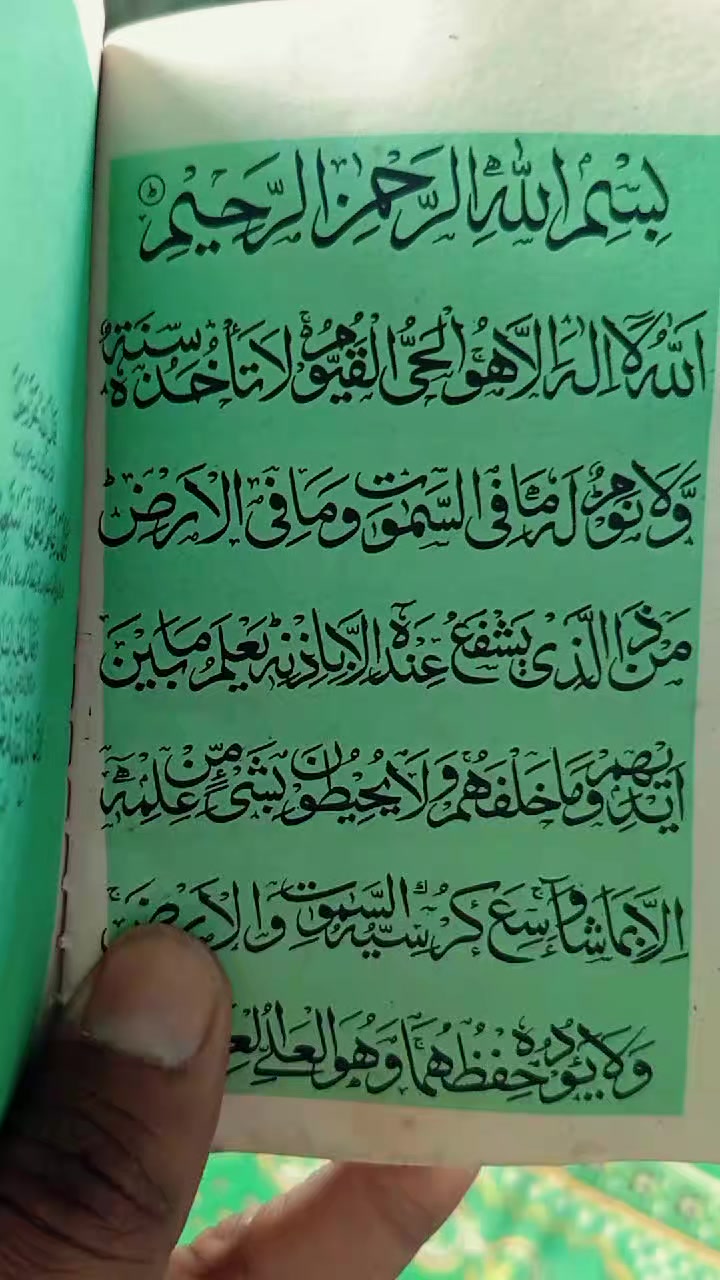 بِسْمِ اللّٰهِ الرَّحْمٰنِ الرَّحِيْمِ
اَللّٰهُ لَآ اِلٰهَ اِلَّا هُوَ الْحَىُّ الْقَيُّوْمُ لَا تَأْخُذُهٗ سِنَةٌ
وَّلَا نَوْمٌ لَهٗ مَا فِى السَّمٰوٰتِ وَمَا فِى الْاَرْضِ
مَنْ ذَا الَّذِىْ يَشْفَعُ عِنْدَهٗٓ اِلَّا بِاِذْنِهٖ يَعْلَمُ مَا بَيْنَ
اَيْدِيْهِمْ وَمَا خَلْفَهُمْ وَلَا يُحِيْطُوْنَ بِشَىْءٍ مِّنْ عِلْمِهٖٓ
اِلَّا بِمَا شَآءَ وَسِعَ كُرْسِيُّهُ السَّمٰوٰتِ وَالْاَرْضَ
وَلَا يَئُوْدُهٗ حِفْظُهُمَا وَهُوَ الْعَلِىُّ